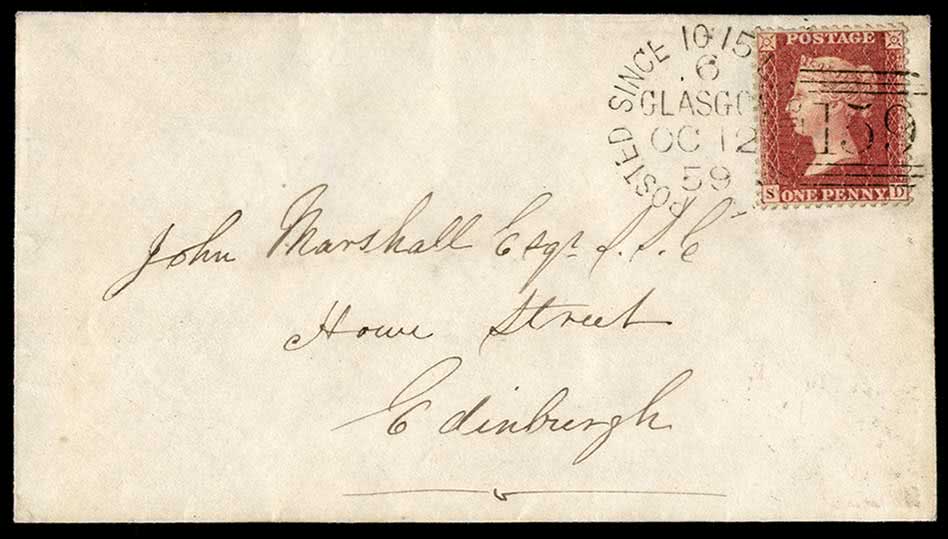 POSTED SINCE 10·15
6
GLASGO
OC 12
59
POSTAGE
159
S ONE PENNY D
John Marshall Esqr. S.S.C
Howe Street
Edinburgh